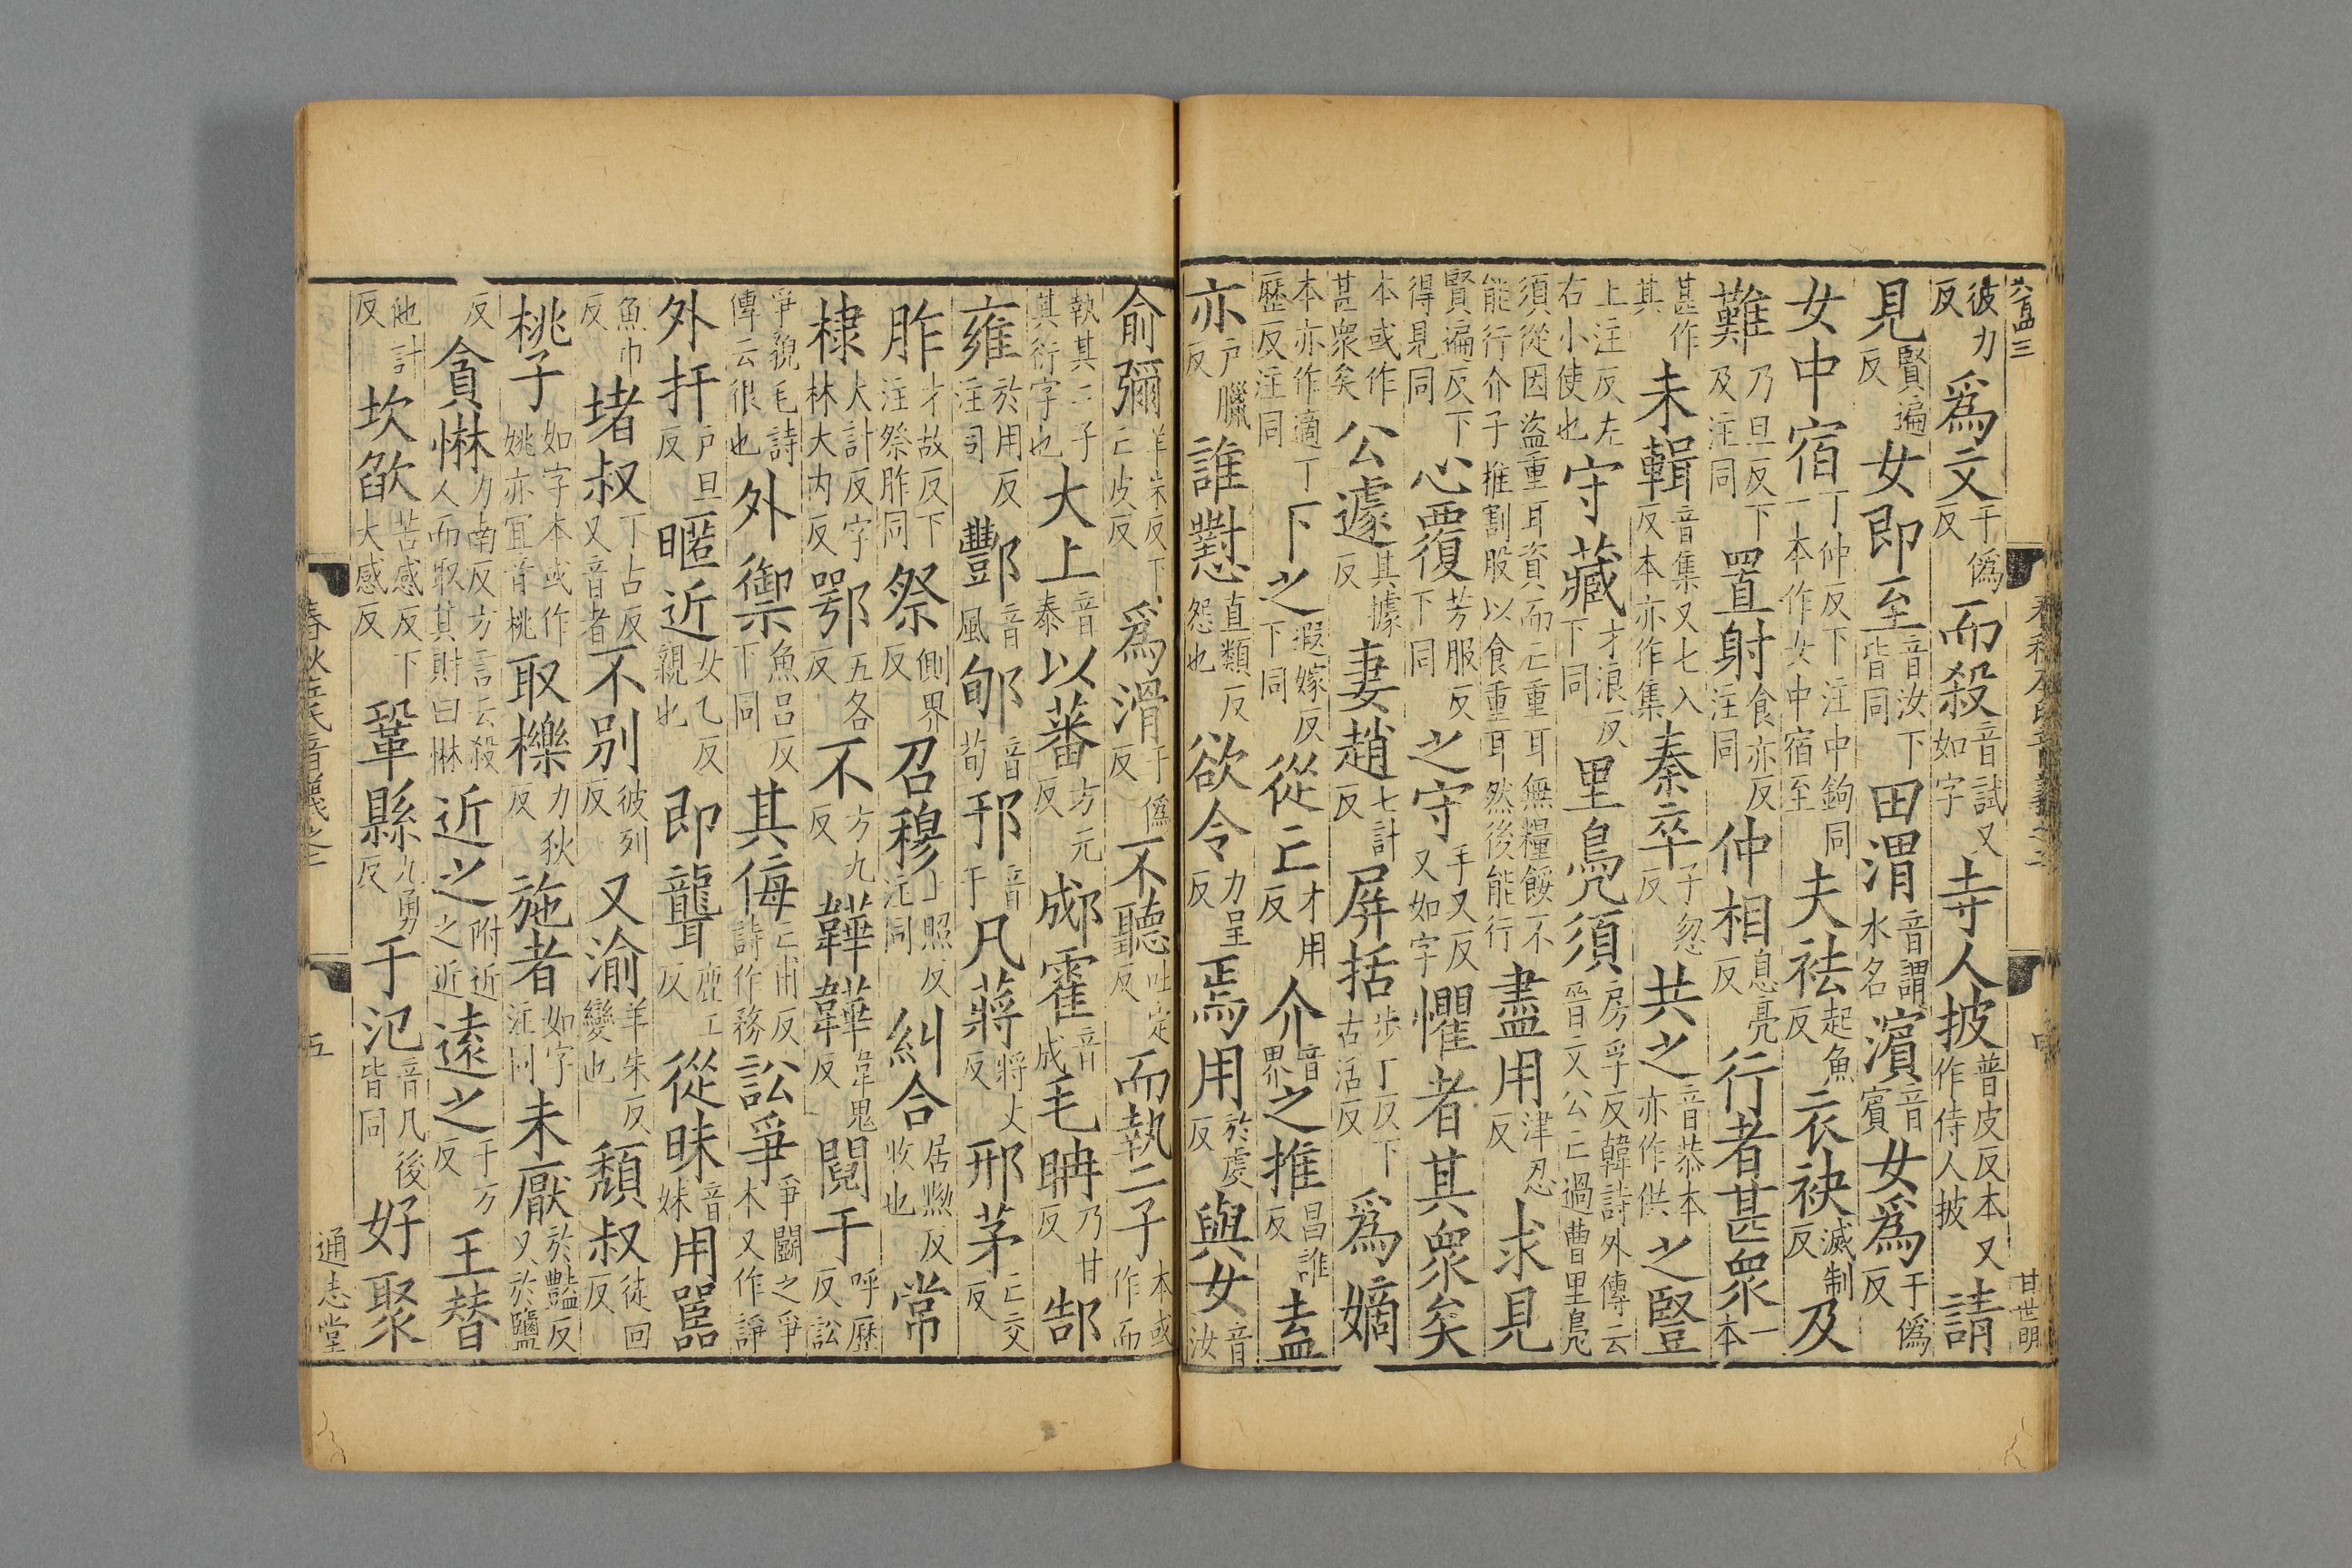 彼力反爲文于偽反而殺音試又如字寺人披普皮反本又作侍人披請
見賢遍反女即至音汝下皆同田渭音謂水名濱音賓女爲于偽反
女中宿丁仲反下注中鉤同一本作女中宿至夫袪起魚反衣袂滅制反及
難乃旦反下及注同置射食亦反注同仲相息亮反行者甚衆一本
甚作其未輯音集又七入反本亦作集秦卒子忽反共之音恭本亦作供之豎
上注反左右小使也守藏才浪反下同里鳧須房孚反韓詩外傳云晉文公亡過曹里鳧
須從因盜重耳資而亡重耳無糧餒不能行介子推割股以食重耳然後能行盡用津忍反求見
賢遍反下得見同心覆芳服反下同之守手又反又如字懼者其衆矣
本或作甚衆矣公遽其據反妻趙七計反屏括步丁反下古活反爲嫡
本亦作適丁歷反注同下之遐嫁反下同從亡才用反介音界之推昌誰反盍
亦戶臘反誰懟直類反怨也欲令力呈反焉用於虔反與女音汝
俞彌羊朱反下亡皮反爲滑于偽反不聽吐定反而執二子本或作而
執其二子其衍字也大上音泰以蕃方元反郕霍音成毛聃乃甘反郜
雍於用反注司酆音風郇音荀邘音于凡蔣將丈反邢茅亡交反
胙才故反下注祭胙同祭側界反召穆上照反注同糾合居黝反收也常
棣大計反字林大内反鄂五各反不方九反韡韡韋鬼反鬩于呼歷反訟
爭貌毛詩傳云很也外禦魚呂反下同其侮亡甫反詩作務訟爭爭鬭之爭本又作諍
外扞戶旦反暱近女乙反親也即聾鹿工反從昧音妹用嚚
魚巾反堵叔丁古反又音者不別彼列反又渝羊朱反變也頹叔徒回反
桃子如字本或作姚亦宜音桃取櫟力狄反施者如字注同未厭於豔反又於鹽
反貪惏力南反方言云殺人而取其財曰惏近之附近之近遠之于万反王替
他計反坎欿苦感反下大感反鞏縣九勇反于氾音凡後皆同好聚
春秋左氏音義之二
五
通志堂
甘世明